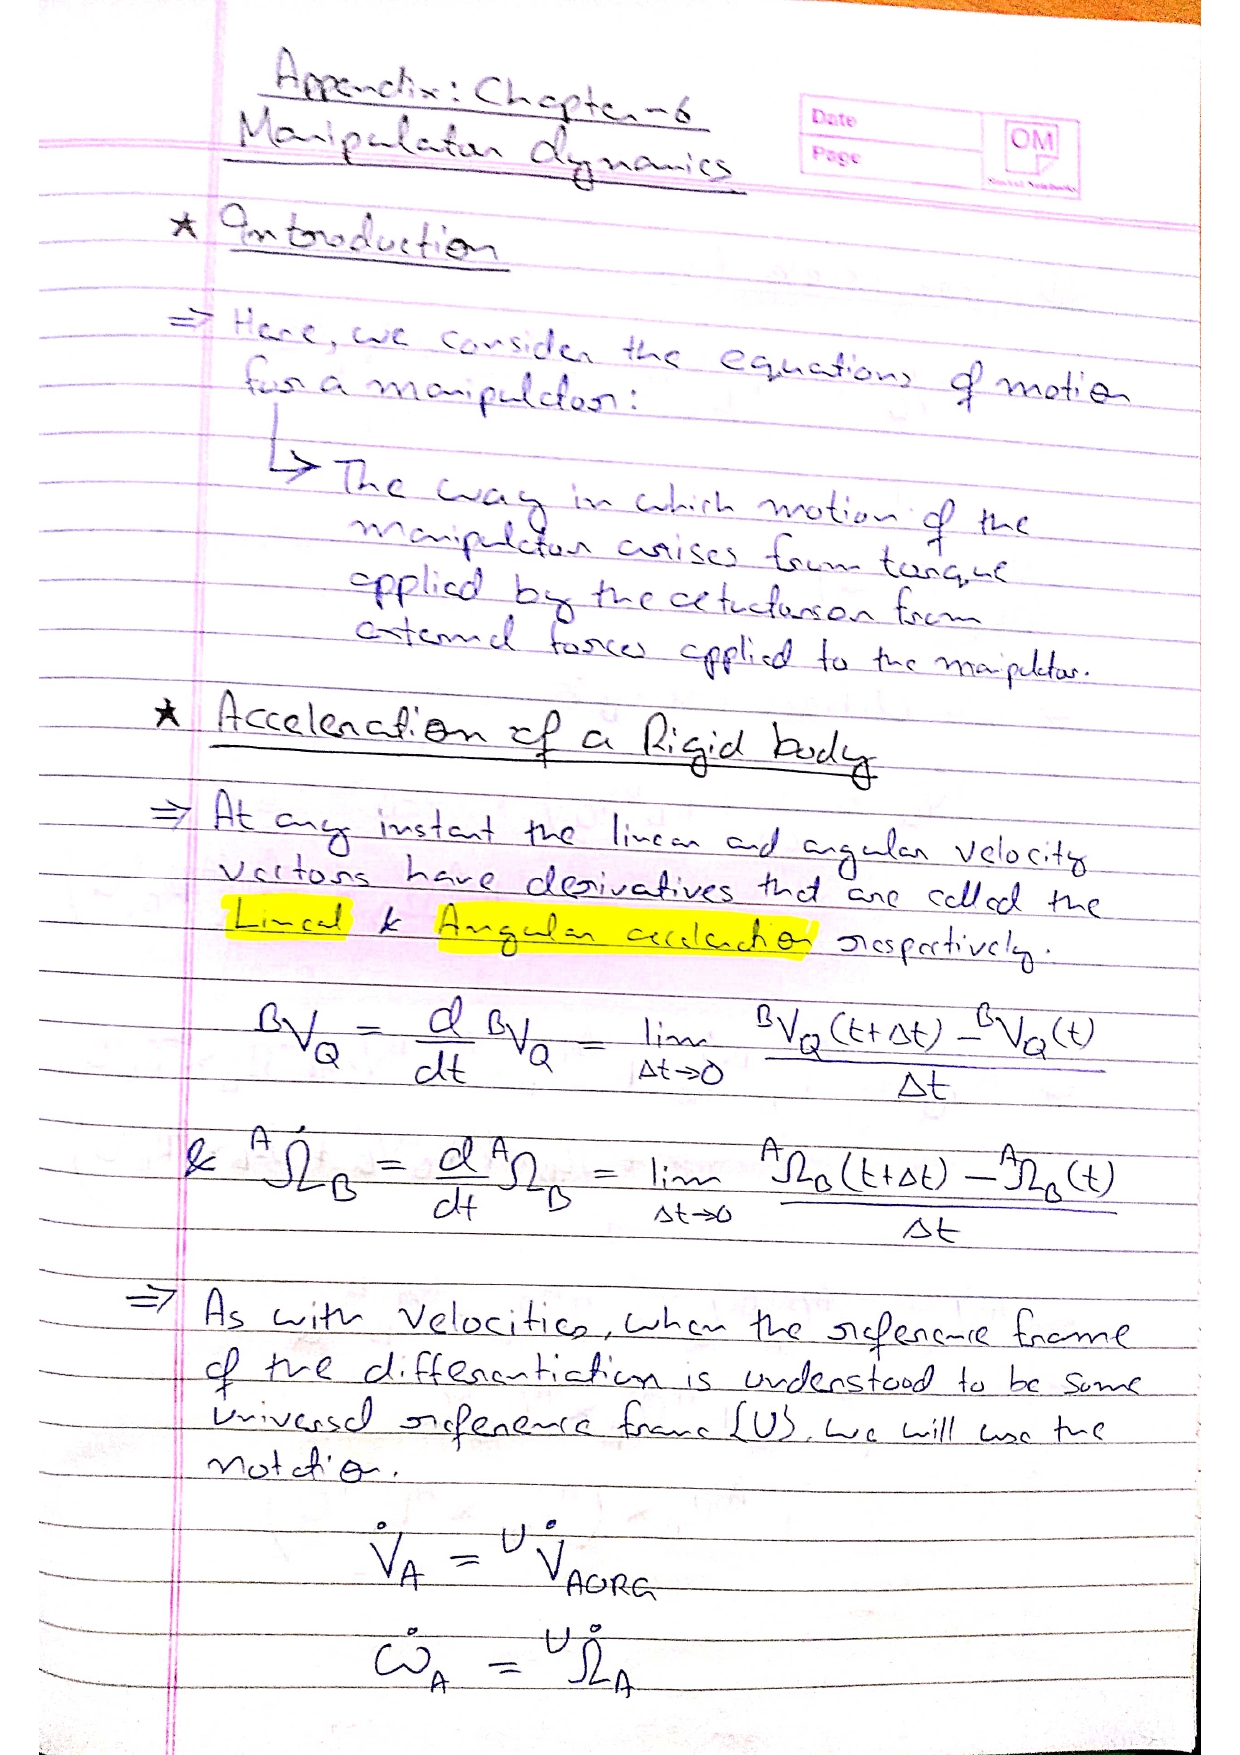 Appendix: Chapter-6
Manipulator dynamics
Date
Page
OM
★ Introduction
⇒ Here, we consider the equations of motion
for a manipulator:
↳ The way in which motion of the
manipulator arises from torque
applied by the actuators or from
external forces applied to the manipulator.
★ Acceleration of a Rigid body
⇒ At any instant the linear and angular velocity
vectors have derivatives that are called the
Linear & Angular acceleration respectively.
ᴮV_Q = d/dt ᴮV_Q = lim Δt→0 (ᴮV_Q(t+Δt) − ᴮV_Q(t))/Δt
& ᴬΩ̇_B = d/dt ᴬΩ_B = lim Δt→0 (ᴬΩ_B(t+Δt) − ᴬΩ_B(t))/Δt
⇒ As with velocities, when the reference frame
of the differentiation is understood to be some
universal reference frame {U}, we will use the
notation.
V̇_A = ᵁV̇_AORG
ω̇_A = ᵁΩ̇_A